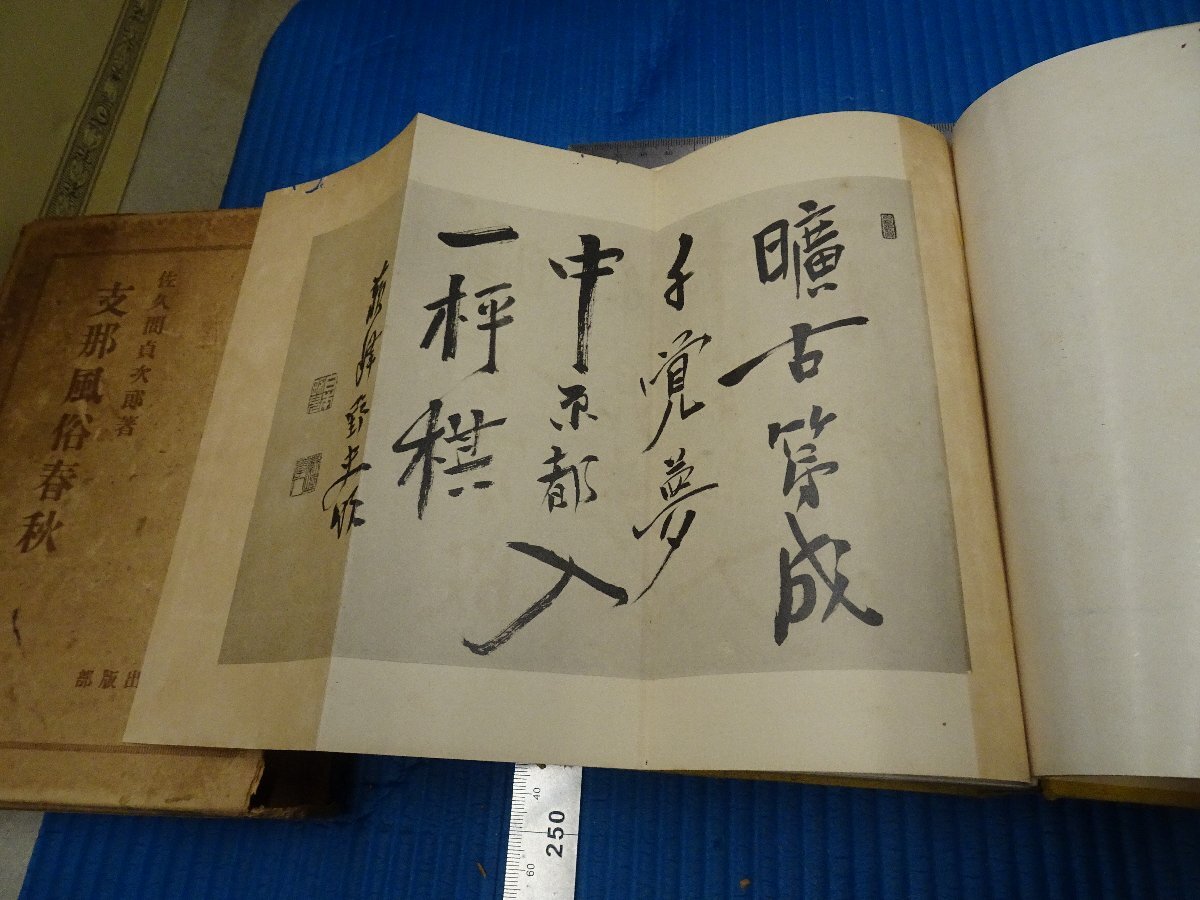 曠古等成
千覚夢
中原都入
一枰棋
蘇峰野史作
佐久間貞次郎著
支那風俗春秋
出版部
40
250
60